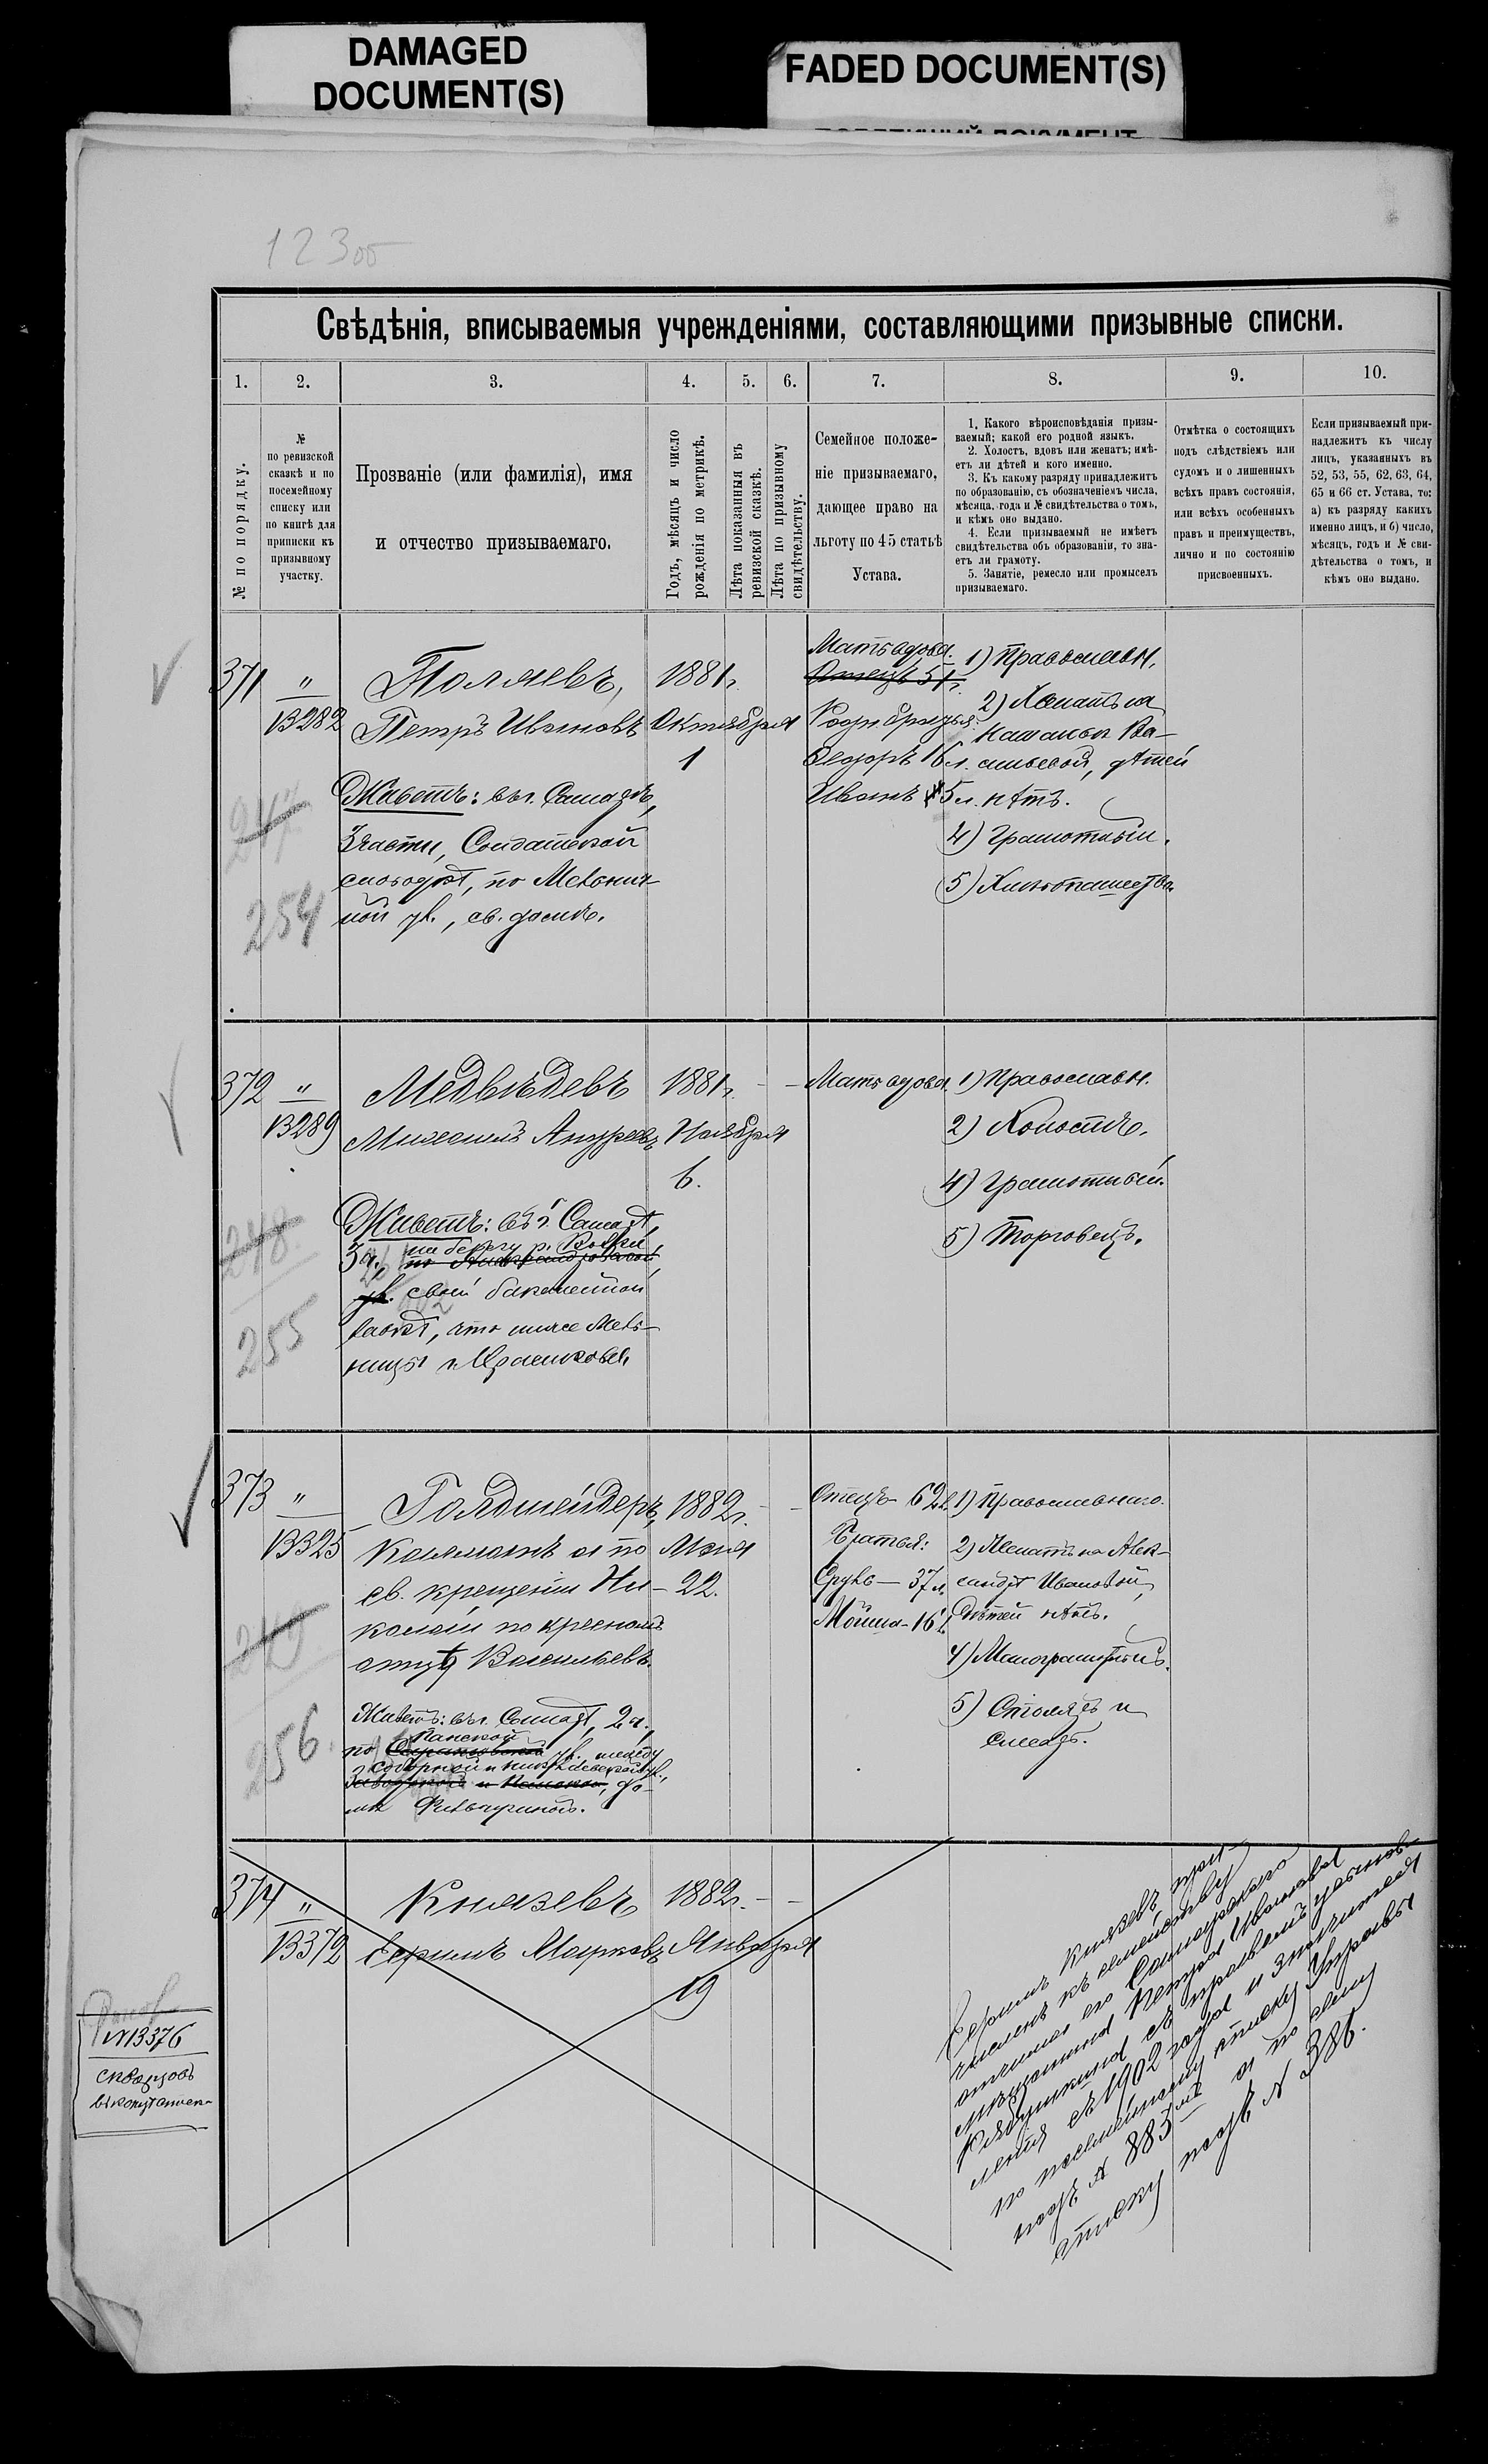 DAMAGED
DOCUMENT(S)
FADED DOCUMENT(S)
123об
Свѣдѣнія, вписываемыя учрежденіями, составляющими призывные списки.
1.
2.
3.
4.
5.
6.
7.
8.
9.
10.
№ по порядку.
№
по ревизской
сказкѣ и по
посемейному
списку или
по книгѣ для
приписки къ
призывному
участку.
Прозваніе (или фамилія), имя
и отчество призываемаго.
Годъ, мѣсяцъ и число
рожденія по метрикѣ.
Лѣта показанныя въ
ревизской сказкѣ.
Лѣта по призывному
свидѣтельству.
Семейное положе-
ніе призываемаго,
дающее право на
льготу по 45 статьѣ
Устава.
1. Какого вѣроисповѣданія призы-
ваемый; какой его родной языкъ.
2. Холостъ, вдовъ или женатъ; имѣ-
етъ ли дѣтей и кого именно.
3. Къ какому разряду принадлежитъ
по образованію, съ обозначеніемъ числа,
мѣсяца, года и № свидѣтельства о томъ,
и кѣмъ оно выдано.
4. Если призываемый не имѣетъ
свидѣтельства объ образованіи, то зна-
етъ ли грамоту.
5. Занятіе, ремесло или промыселъ
призываемаго.
Отмѣтка о состоящихъ
подъ слѣдствіемъ или
судомъ и о лишенныхъ
всѣхъ правъ состоянія,
или всѣхъ особенныхъ
правъ и преимуществъ,
лично и по состоянію
присвоенныхъ.
Если призываемый при-
надлежитъ къ числу
лицъ, указанныхъ въ
52, 53, 55, 62, 63, 64,
65 и 66 ст. Устава, то:
а) къ разряду какихъ
именно лицъ, и б) число,
мѣсяцъ, годъ и № сви-
дѣтельства о томъ, и
кѣмъ оно выдано.
371
"
13282
Поляевъ,
Петръ Ивановъ
Живетъ: въ г. Самарѣ,
3 части, Солдатской
слободѣ, по Мельнич-
ной ул., св. домъ.
1881 г.
Октября
1
Мать вдова.
Отецъ 51 г.
Родн. братья
Ѳедоръ 16 л.
Иванъ 5 л.
1) Православн.
2) Женатъ на
Ва-
сильевой, дѣтей
нѣтъ.
4) Грамотный.
5) Хлѣбопашество.
247
254
372
"
13289
Медвѣдевъ
Михаилъ Андреевъ
Живетъ: въ г. Самарѣ,
3 ч., на берегу р. Волги,
ул. своей бакалейной
лавкѣ, что ниже Мель-
ницы
1881 г.
Ноября
6.
Мать вдова.
1) Православн.
2) Холостъ.
4) Грамотный.
5) Торговецъ.
248
255
373
"
13325
Голдшейдеръ,
Калманъ а по
св. крещенію Ни-
колай по крестному
отцу Васильевъ.
Живетъ: въ г. Самарѣ, 2 ч.,
Панской
по ул. между
Соборной и
до-
мъ
1882 г.
Мая
22.
Отецъ 62 л.
Братья:
Сруль — 37 л.
Мойша - 16 л.
1) Православнаго.
2) Женатъ на Алек-
сандрѣ Ивановой,
Дѣтей нѣтъ.
4) Малограмотенъ.
5) Столяръ и
249
256
374
"
13372
Князевъ
Ефимъ Марковъ
1882 г.
Января
19
Ефимъ Князевъ при-
численъ къ семейству
отчима его Самарскаго
мѣщанина Петра Иванова
съ правами усынов-
ленія съ 1902 года и значится
по посемейному списку Управы
подъ № 883мъ а по сему
списку подъ № 386.
№13376
Скворцовъ